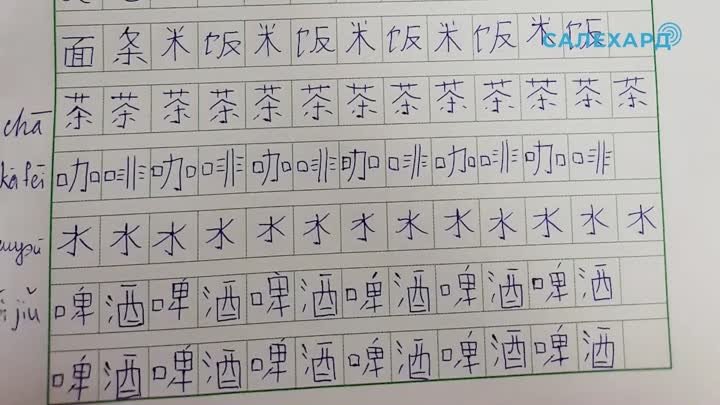 面条米饭米饭米饭米饭米饭
САЛЕХАРД
chā 茶茶茶茶茶茶茶茶茶茶茶茶茶
kāfēi 咖啡咖啡咖啡咖啡咖啡咖啡
水水水水水水水水水水水水水
jiǔ 啤酒啤酒啤酒啤酒啤酒啤酒
啤酒啤酒啤酒啤酒啤酒啤酒